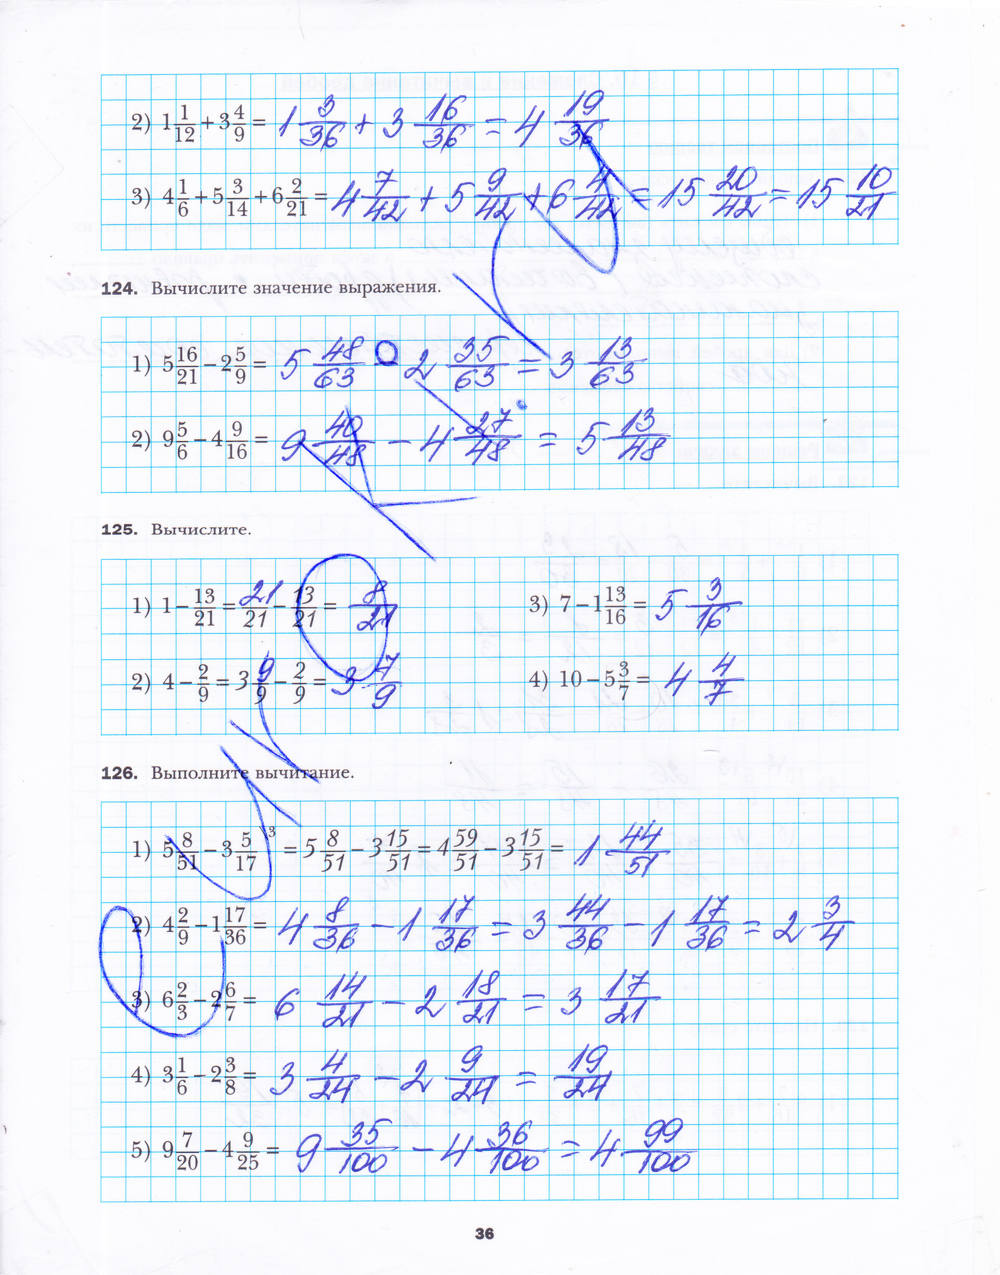 2) 1 1/12 + 3 4/9 = 1 3/36 + 3 16/36 = 4 19/36
3) 4 1/6 + 5 3/14 + 6 2/21 = 4 7/42 + 5 9/42 + 6 4/42 = 15 20/42 = 15 10/21
124. Вычислите значение выражения.
1) 5 16/21 − 2 5/9 = 5 48/63 − 2 35/63 = 3 13/63
2) 9 5/6 − 4 9/16 = 9 40/48 − 4 27/48 = 5 13/48
125. Вычислите.
1) 1 − 13/21 = 21/21 − 13/21 = 8/21
3) 7 − 1 13/16 = 5 3/16
2) 4 − 2/9 = 3 9/9 − 2/9 = 3 7/9
4) 10 − 5 3/7 = 4 4/7
126. Выполните вычитание.
1) 5 8/51 − 3 5/17 ^3 = 5 8/51 − 3 15/51 = 4 59/51 − 3 15/51 = 1 44/51
2) 4 2/9 − 1 17/36 = 4 8/36 − 1 17/36 = 3 44/36 − 1 17/36 = 2 3/4
3) 6 2/3 − 2 6/7 = 6 14/21 − 2 18/21 = 3 17/21
4) 3 1/6 − 2 3/8 = 3 4/24 − 2 9/24 = 19/24
5) 9 7/20 − 4 9/25 = 9 35/100 − 4 36/100 = 4 99/100
36